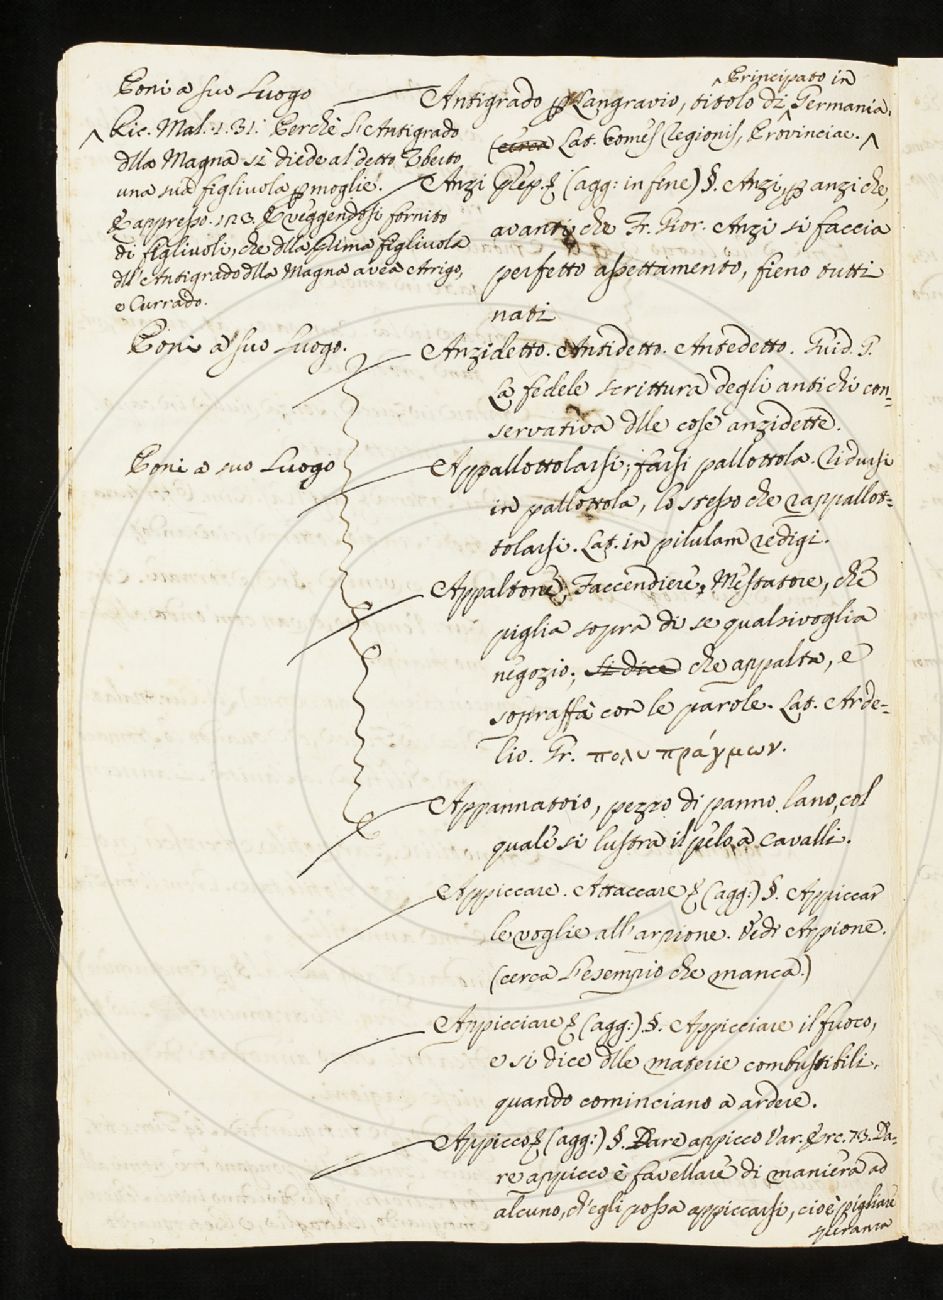 Poni a suo Luogo
Ric. Mal. 131. Perchè l'Antigrado
dlla Magna si diede al detto Uberto
una sua figliuola p moglie.
E appresso. 123. E veggendosi fornito
di figliuoli, che dlla prima figliuola
dll'Antigrado dlla Magna avea Arrigo,
e Currado.
Poni a suo Luogo.
Poni a suo Luogo
Principato in
Antigrado p Langravio, titolo di Germania.
(cerca Lat. Comes Regionis, Provinciae.
Anzi Prep. (agg: in fine) §. Anzi, p anzi che,
avanti che Fr. Gior. Anzi si faccia
perfetto assettamento, fieno tutti
nati
Anzidetto. Antidetto. Antedetto. Guid. G.
La fedele scrittura degli antichi con-
servativa dlle cose anzidette.
Appallottolarsi, farsi pallottola. Ridursi
in pallottola, lo stesso che rappallot-
tolarsi. Lat. in pilulam redigi.
Appaltone, Faccendiere, Mestatore, che
piglia sopra di se qualsivoglia
negozio, si dice che appalta, e
sopraffà con le parole. Lat. Arde-
lio. Gr. πολυπράγμων.
Appannatoio, pezzo di panno lano, col
quale si lustra il pelo a cavalli.
Appiccare. Attaccare (agg:) §. Appiccar
le voglie all'arpione. Vedi Arpione.
(cerca l'esempio che manca.)
Appicciare (agg:) §. Appicciare il fuoco,
e si dice dlle materie combustibili,
quando cominciano a ardere.
Appicco (agg:) §. Dare appicco Var. Erc. 73. Da-
re appicco è favellare di maniera ad
alcuno, ch'egli possa appiccarsi, cioè pigliare
speranza